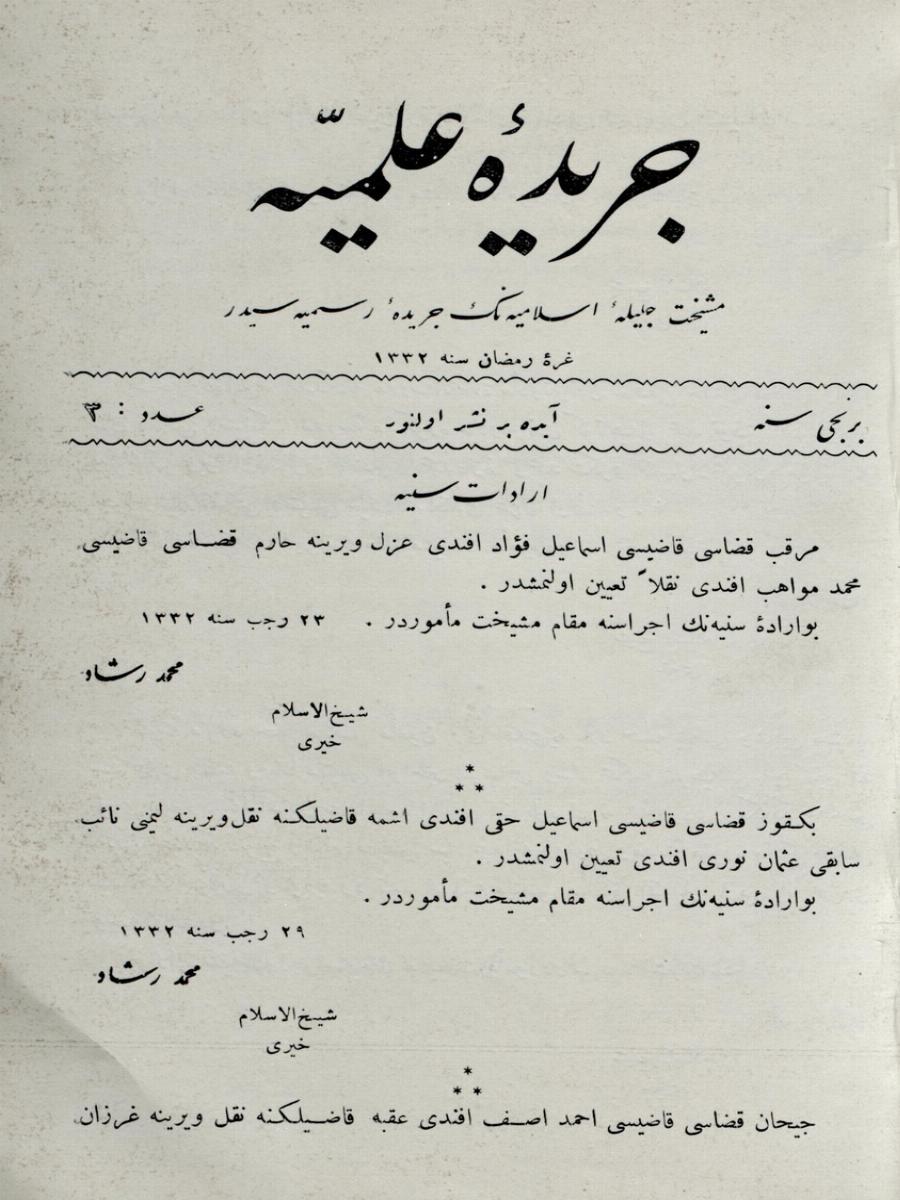 جریدهٔ علمیّه
مشیخت جلیلهٔ اسلامیه‌نك جریدهٔ رسمیه‌سیدر
غرهٔ رمضان سنه ۱۳۳۲
برنجی سنه
آیده بر نشر اولنور
عدد : ۳
ارادات سنیه
مرقب قضاسی قاضیسی اسماعیل فؤاد افندی عزل ویرینه حارم قضاسی قاضیسی
محمد مواهب افندی نقلاً تعیین اولنمشدر .
بوارادهٔ سنیه‌نك اجراسنه مقام مشیخت مأموردر . ۲۳ رجب سنه ۱۳۳۲
محمد رشاد
شیخ‌الاسلام
خیری
*
* *
بكقوز قضاسی قاضیسی اسماعیل حقی افندی اشمه قاضیلكنه نقل ویرینه لیمنی نائب
سابقی عثمان نوری افندی تعیین اولنمشدر .
بوارادهٔ سنیه‌نك اجراسنه مقام مشیخت مأموردر .
۲۹ رجب سنه ۱۳۳۲
محمد رشاد
شیخ‌الاسلام
خیری
*
* *
جیحان قضاسی قاضیسی احمد اصف افندی عقبه قاضیلكنه نقل ویرینه غرزان